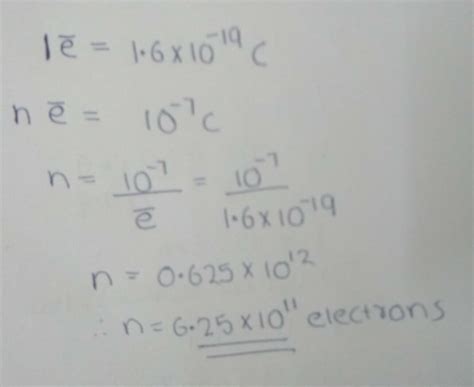 1ē = 1.6×10⁻¹⁹ C
n ē = 10⁻⁷ C
n = 10⁻⁷/ē = 10⁻⁷/1.6×10⁻¹⁹
n = 0.625×10¹²
∴ n = 6.25×10¹¹ electrons